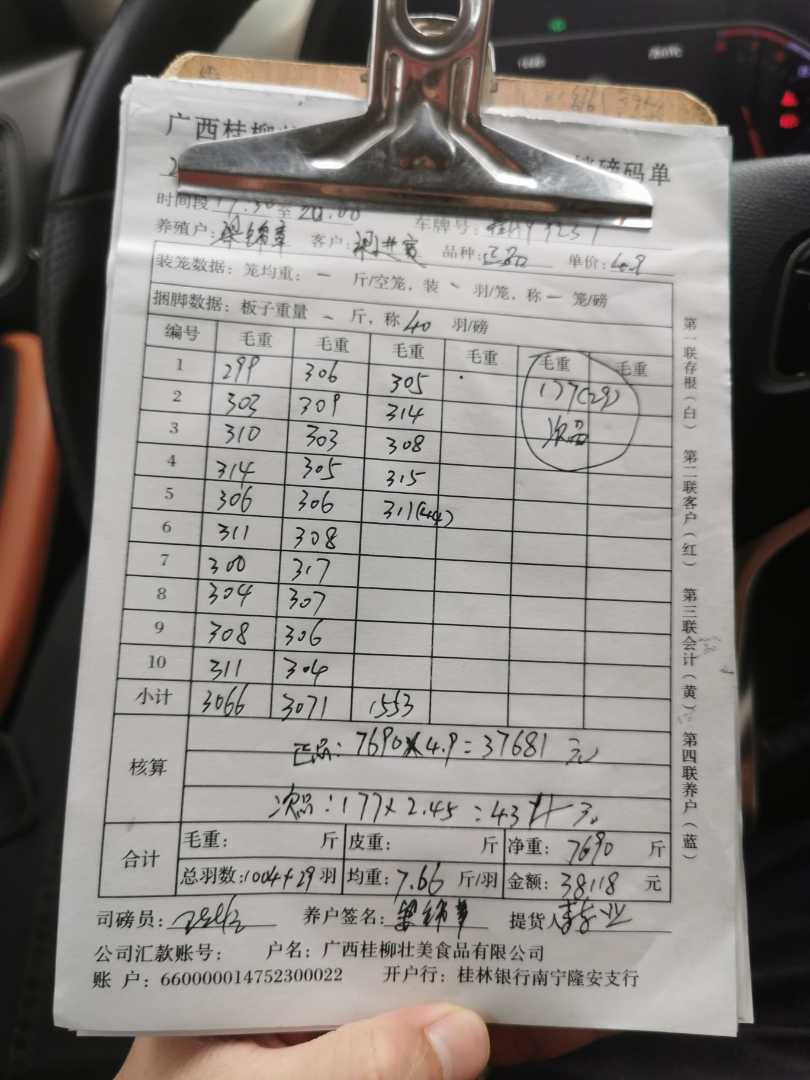 广西桂柳 磅码单
时间段17.30至20.00 车牌号:
养殖户: 客户: 品种:正品 单价:4.9
装笼数据:笼均重:一 斤/空笼,装 羽/笼,称一笼/磅
捆脚数据:板子重量 斤,称40羽/磅
编号 毛重 毛重 毛重 毛重 毛重 毛重
1 299 306 305 177(29)
2 303 309 314 次品
3 310 303 308
4 314 305 315
5 306 306 311(44)
6 311 308
7 300 317
8 304 307
9 308 306
10 311 304
小计 3066 3071 1553
核算 正品:7690×4.9=37681元
次品:177×2.45=437元
合计 毛重: 斤 皮重: 斤 净重:7690斤
总羽数:1004+29羽 均重:7.66斤/羽 金额:38118元
司磅员: 养户签名: 提货人
公司汇款账号: 户名:广西桂柳壮美食品有限公司
账 户:660000014752300022 开户行:桂林银行南宁隆安支行
第一联存根(白) 第二联客户(红) 第三联会计(黄) 第四联养户(蓝)